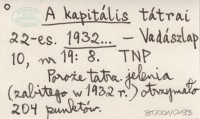 A kapitális tátrai
22-es. 1932... – Vadászlap
10, nr 19: 8. TNP
Poroże tatra. jelenia
(zabitego w 1932 r.) otrzymało
204 punktów.